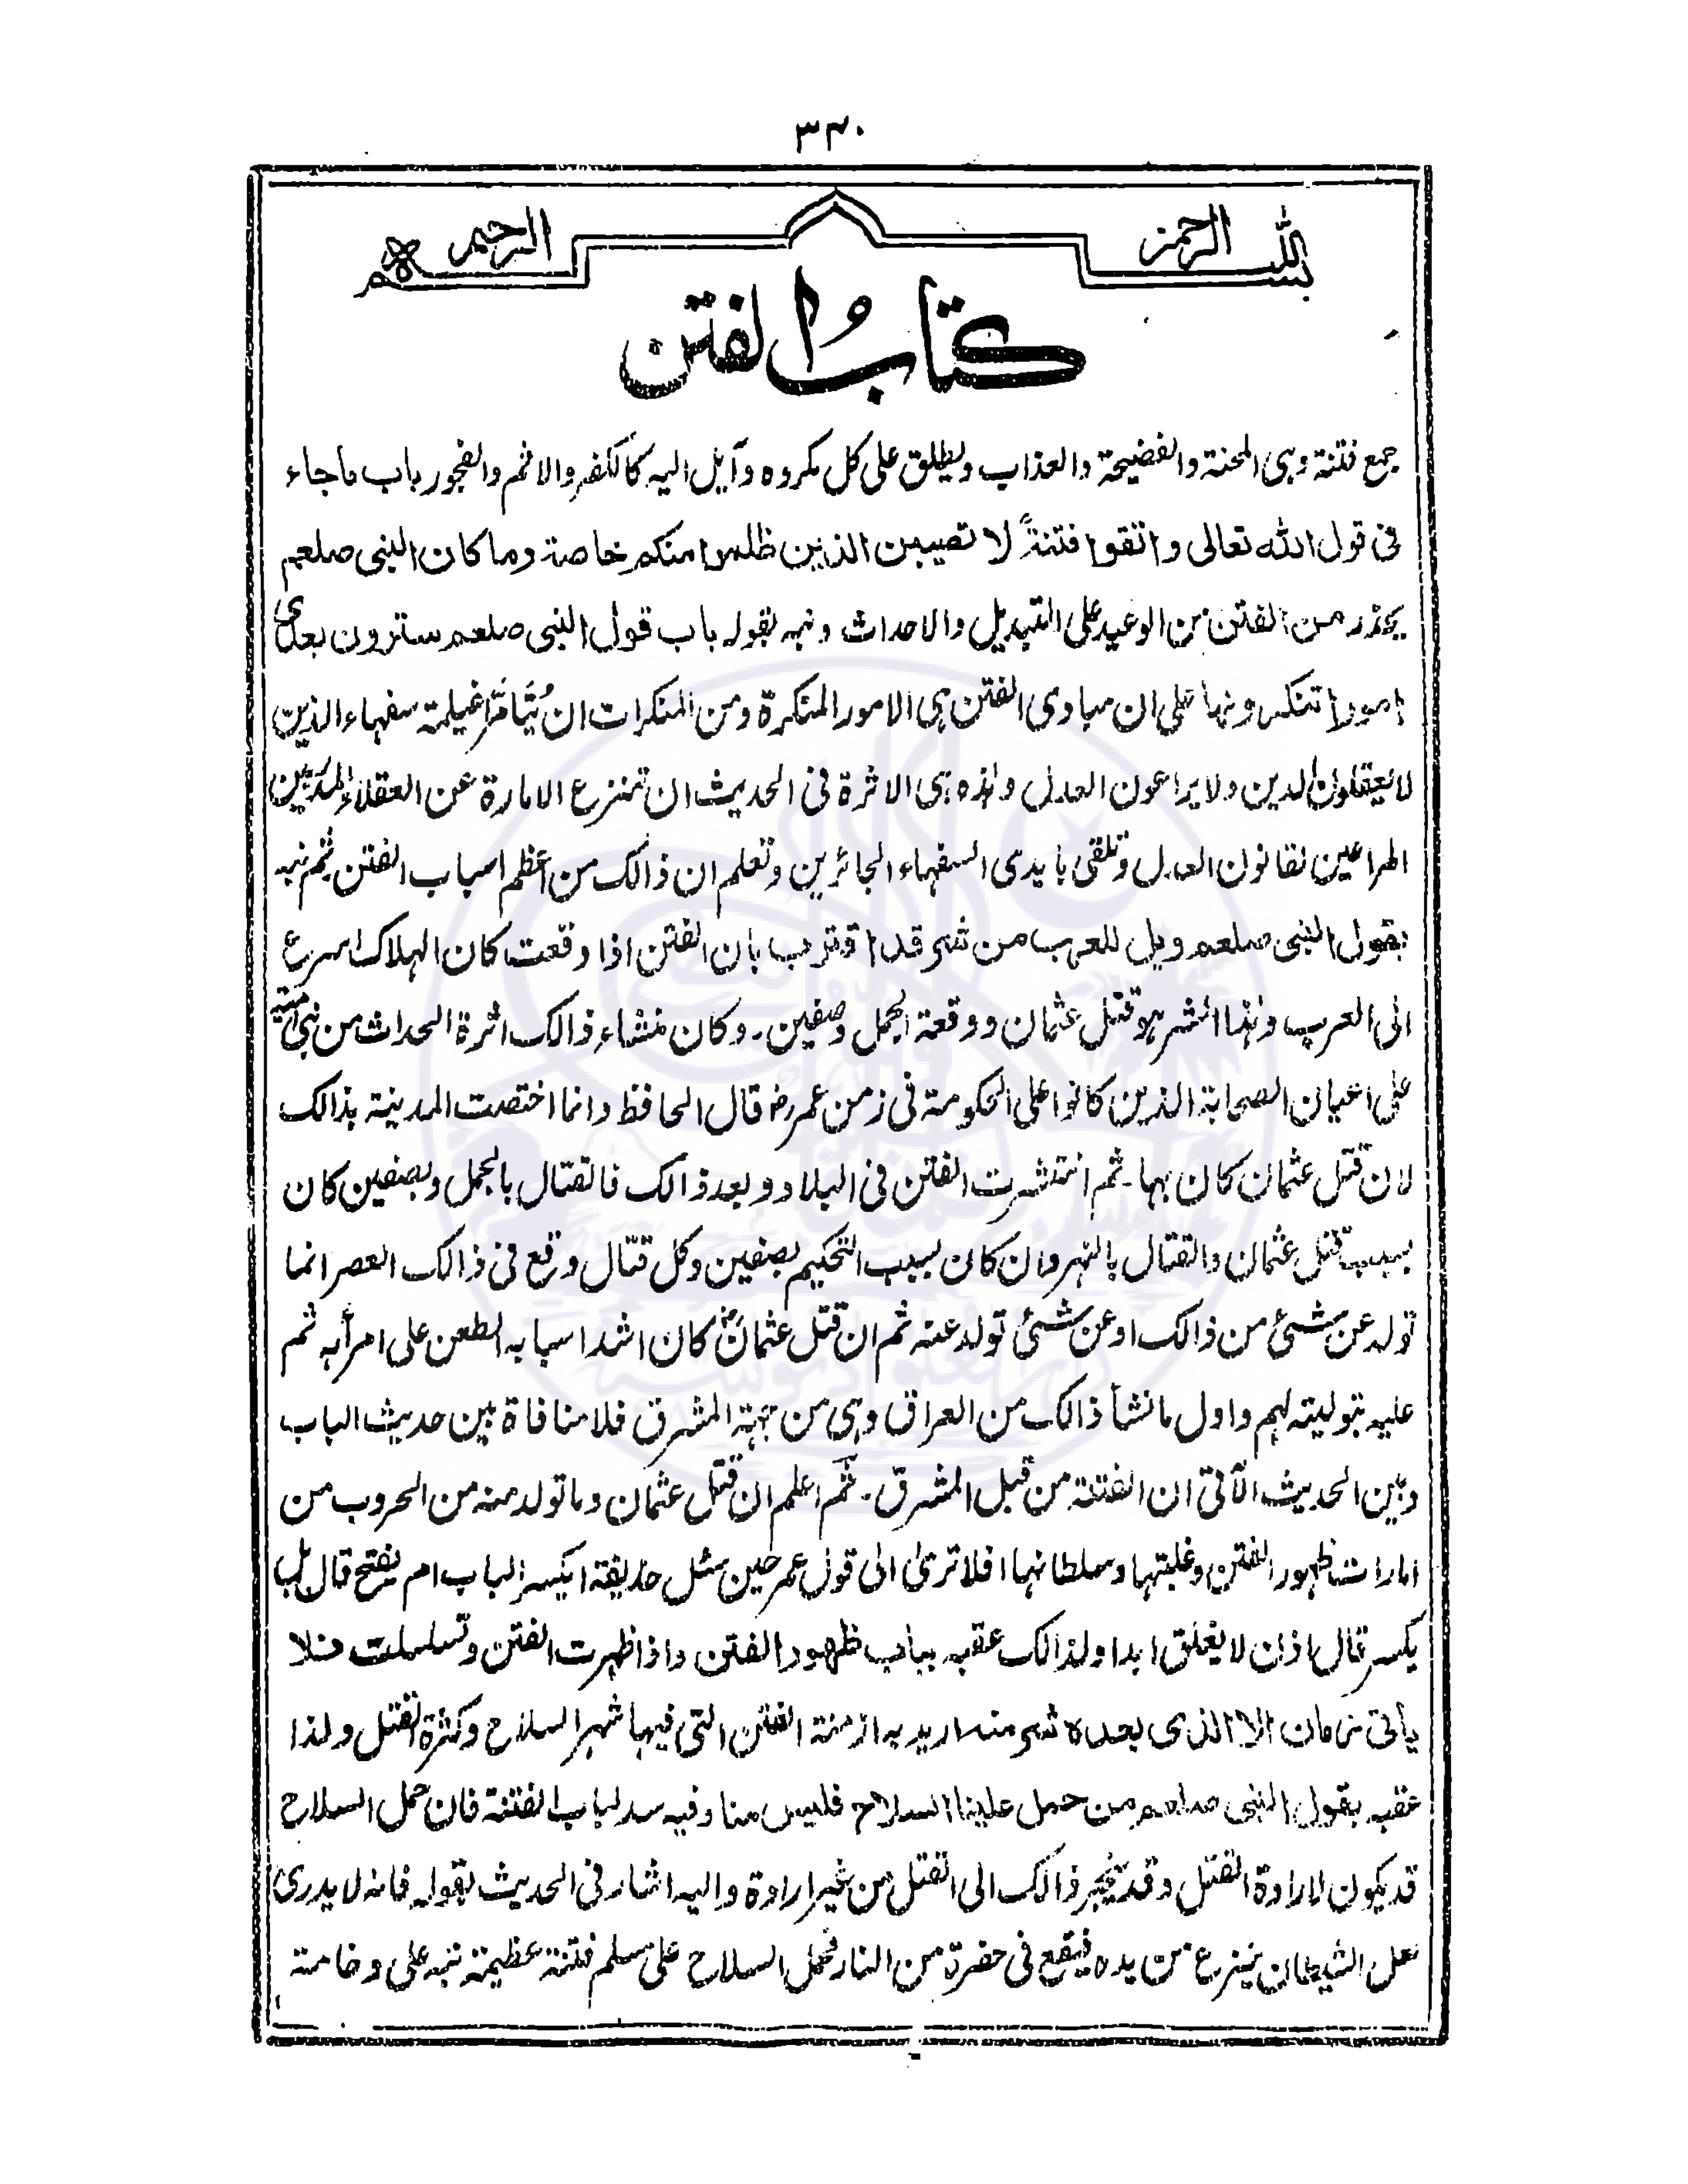 ٣٤٠
بسم الله الرحمن الرحيم
كتاب الفتن
جمع فتنة وہی المحنة والفضيحة والعذاب ويطلق على كل مكروه وآيل اليه كالكفر والاثم والفجور باب ما جاء
فی قول الله تعالى واتقوا فتنةً لا تصيبن الذين ظلموا منكم خاصة وما كان النبی صلعم
يحذر من الفتن من الوعيد على التبديل والاحداث ونبه بقوله باب قول النبی صلعم سترون بعدی
امورا تنكرونها على ان مبادی الفتن ہی الامور المنكرة ومن المنكرات ان يُتَأمَّر اغيلمة سفهاء الذين
لا يعقلون الدين ولا يراعون العدل وہذه ہی الاثرة فی الحديث ان تنتزع الامارة عن العقلاء المدينين
المراعين لقانون العدل وتلقى بايدی السفهاء الجائرين وتعلم ان ذالک من اعظم اسباب الفتن ثم نبه
بقول النبی صلعم ويل للعرب من شر قد اقترب بان الفتن اذا وقعت كان الہلاک اسرع
الى العرب وہذا الشر ہو قتل عثمان ووقعة الجمل وصفين۔ وكان منشاء ذالک اثرة الحداث من بنی امية
على اعيان الصحابة الذين كانوا على الحكومة فی زمن عمر رض قال الحافظ وانما اختصت المدينة بذالک
لان قتل عثمان كان بہا۔ ثم انتشرت الفتن فی البلاد وبعد ذالک فالقتال بالجمل وبصفين كان
بسبب قتل عثمان والقتال بالنہروان كان بسبب التحكيم بصفين وكل قتال وقع فی ذالک العصر انما
تولد عن شیٔ من ذالک او عن شیٔ تولد عنه ثم ان قتل عثمان رض كان اشد اسبابه الطعن على امرأیہ ثم
عليه بتوليته لہم واول ما نشأ ذالک من العراق وہی من جہة المشرق فلا منافاة بين حديث الباب
وبين الحديث الآتی ان الفتنة من قبل المشرق۔ ثم اعلم ان قتل عثمان وما تولد منه من الحروب من
امارات ظہور الفتن وغلبتہا وسلطانہا افلا ترىٰ الى قول عمر حين سئل حذيفة ايكسر الباب ام يفتح قال بل
يكسر قال اذن لا يغلق ابدا ولذالک عقبه بباب ظهور الفتن واذا ظہرت الفتن وتسلسلت فلا
ياتی زمان الا الذی بعده شر منه اريد به ازمنة الفتن التی فيہا شہر السلاح وكثرة القتل ولذا
عقبه بقول النبی صلعم من حمل علينا السلاح فليس منا وفيه سد لباب الفتنة فان حمل السلاح
قد يكون لارادة القتل وقد يجر ذالک الى القتل من غير ارادة واليه اشار فی الحديث بقوله فانه لا يدری
لعل الشيطان ينزع من يده فيقع فی حفرة من النار فحمل السلاح على مسلم فتنة عظيمة نبه على وخامة